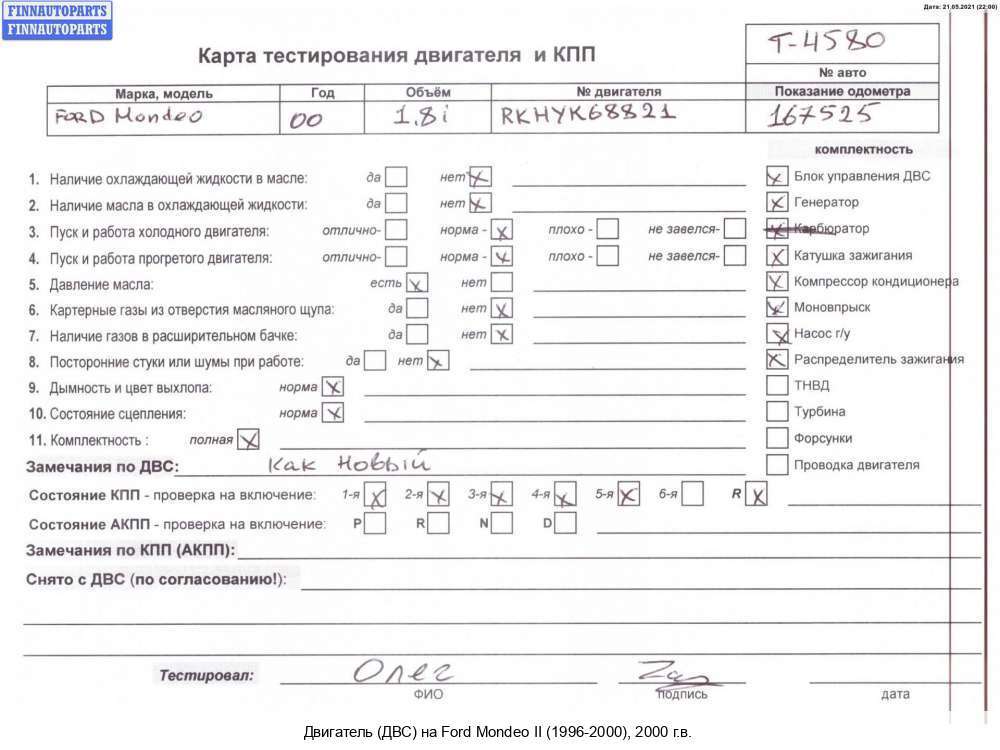 FINNAUTOPARTS
FINNAUTOPARTS
Дата: 21.05.2021 (22:00)
Карта тестирования двигателя и КПП
T-4580
№ авто
Марка, модель Год Объём № двигателя Показание одометра
FORD Mondeo 00 1,8i RKHYK68821 167525
комплектность
1. Наличие охлаждающей жидкости в масле: да нет Блок управления ДВС
2. Наличие масла в охлаждающей жидкости: да нет Генератор
3. Пуск и работа холодного двигателя: отлично- норма - плохо - не завелся- Карбюратор
4. Пуск и работа прогретого двигателя: отлично- норма - плохо - не завелся- Катушка зажигания
5. Давление масла: есть нет Компрессор кондиционера
6. Картерные газы из отверстия масляного щупа: да нет Моновпрыск
7. Наличие газов в расширительном бачке: да нет Насос г/у
8. Посторонние стуки или шумы при работе: да нет Распределитель зажигания
9. Дымность и цвет выхлопа: норма ТНВД
10. Состояние сцепления: норма Турбина
11. Комплектность : полная Форсунки
Замечания по ДВС: Как новый Проводка двигателя
Состояние КПП - проверка на включение: 1-я 2-я 3-я 4-я 5-я 6-я R
Состояние АКПП - проверка на включение: P R N D
Замечания по КПП (АКПП):
Снято с ДВС (по согласованию!):
Тестировал: Олег
ФИО подпись дата
Двигатель (ДВС) на Ford Mondeo II (1996-2000), 2000 г.в.